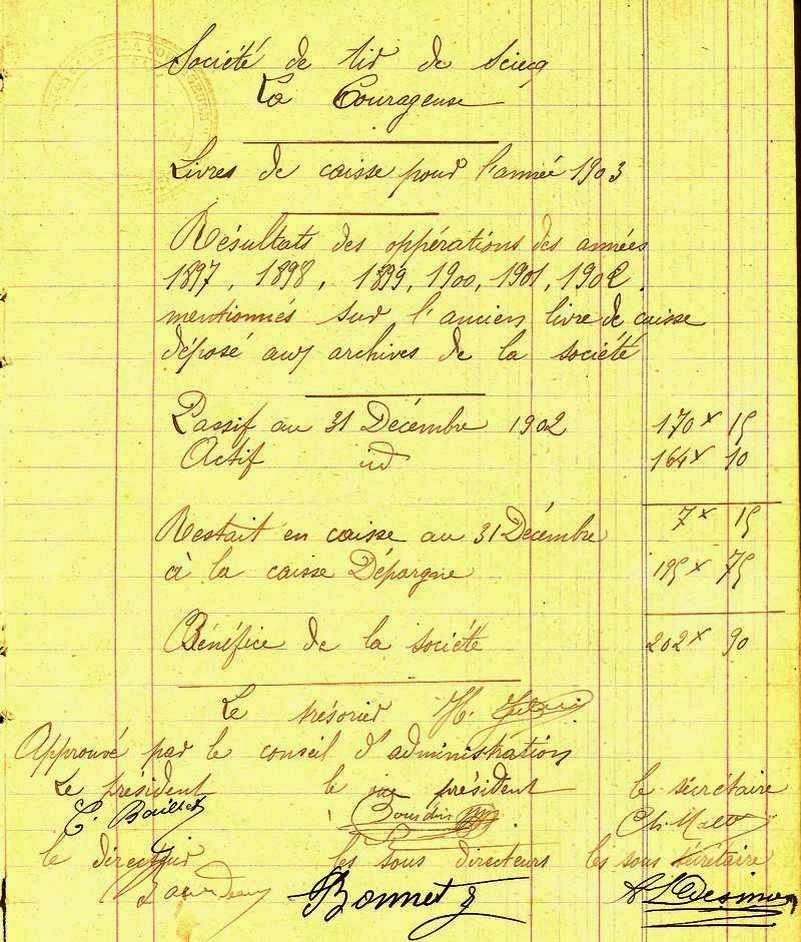 Société de tir de Sciecq
La Courageuse
Livres de caisse pour l'année 1903
Résultats des oppérations des années
1897, 1898, 1899, 1900, 1901, 1902
mentionnés sur l'ancien livre de caisse
déposé aux archives de la société
Passif au 31 Décembre 1902 170 x 15
Actif id 164 x 10
7 x 15
Restait en caisse au 31 Décembre
à la caisse Dépargne 195 x 75
Bénéfice de la société 202 x 90
Le trésorier H.
Approuvé par le conseil d'administration
Le président le vice président le sécrétaire
Baillet Bourdin Ch.
le directeur les sous directeurs les sous sécrétaire
Bonnet